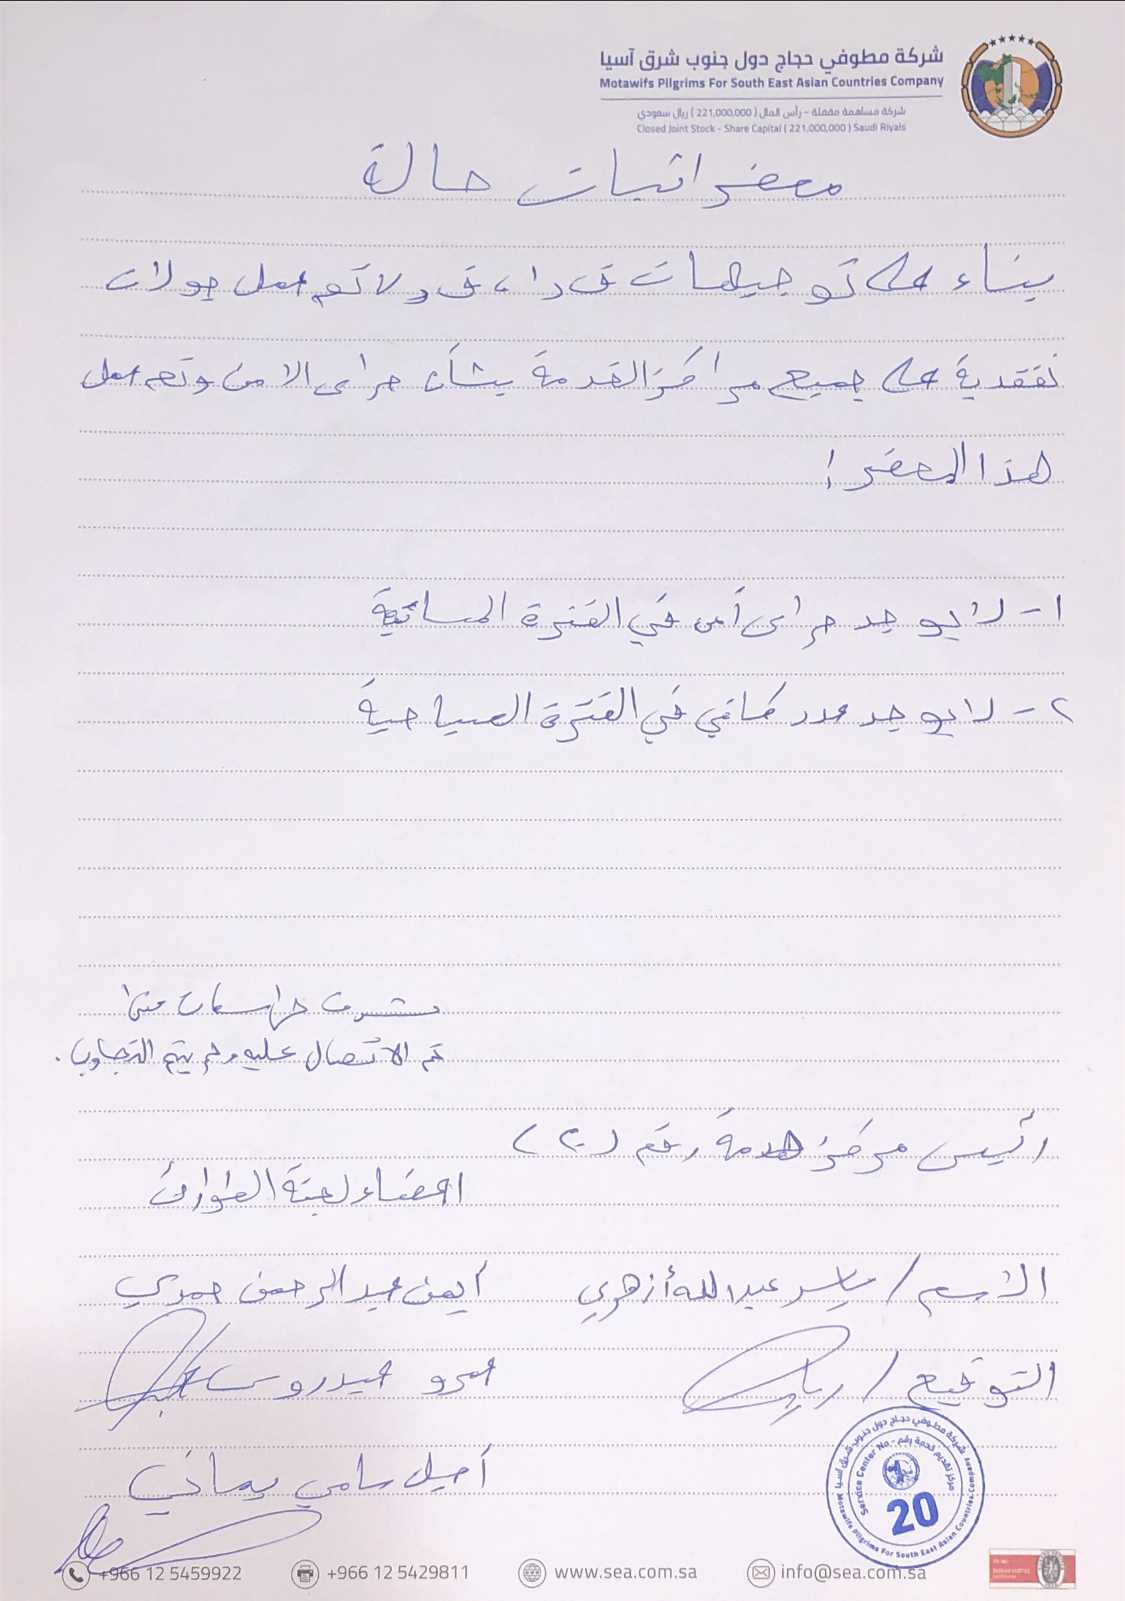 شركة مطوفي حجاج دول جنوب شرق آسيا
Motawifs Pilgrims For South East Asian Countries Company
شركة مساهمة مقفلة - رأس المال ( 221,000,000 ) ريال سعودي
Closed Joint Stock - Share Capital ( 221,000,000 ) Saudi Riyals
محضر اثبات حالة
بناء على توجيهات تم عمل جولات
تفقدية على جميع مراكز الخدمة بشأن حراس الامن وتم عمل
هذا المحضر :
١- لا يوجد حراس أمن في الفترة المسائية
٢- لا يوجد عدد كافي في الفترة الصباحية
مشرف حراسات منى
تم الاتصال عليه ولم يتم التجاوب .
رئيس مركز خدمة رقم (٢٠)
اعضاء لجنة الطوارئ
الاسم / ياسر عبدالله أزهري أيمن عبدالرحمن حمدي
التوقيع / عمرو عيدروس
أصيل سامي يماني
شركة مطوفي حجاج دول جنوب شرق آسيا
مركز تقديم خدمة رقم - Service Center No
20
Motawifs Pilgrims For South East Asian Countries Company
+966 12 5459922 +966 12 5429811 www.sea.com.sa info@sea.com.sa